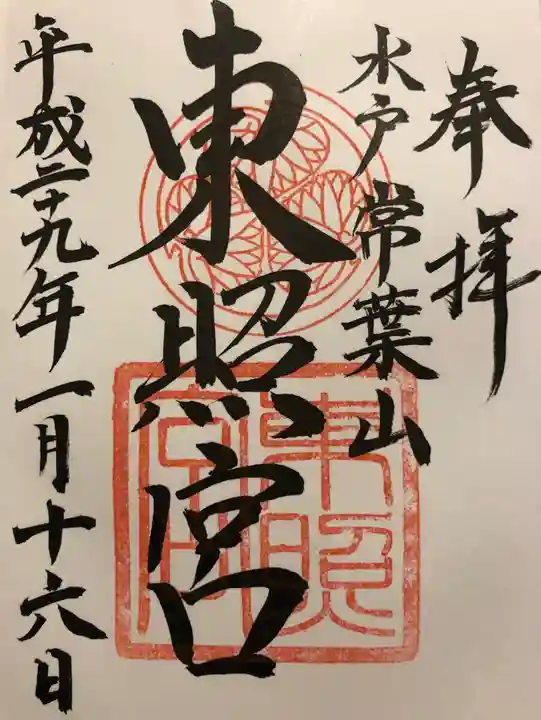 奉拝
水戸常葉山
東照宮
平成二十九年一月十六日
東照宮